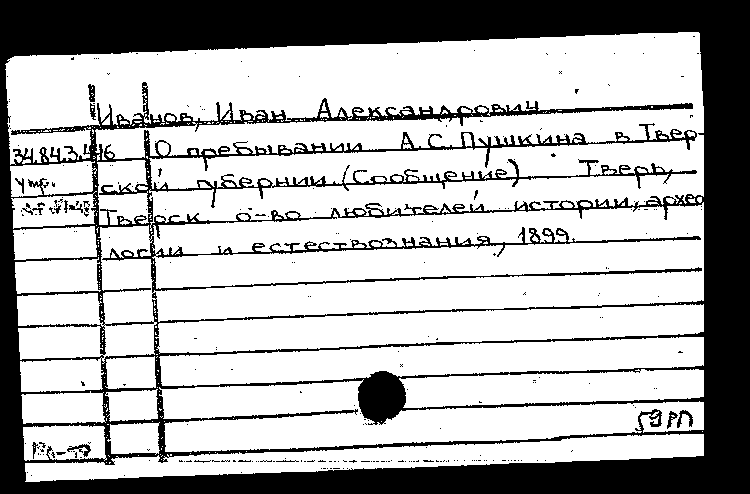 Иванов, Иван Александрович
34.84.3.416 О пребывании А.С.Пушкина в Твер-
утр. ской губернии.(Сообщение). Тверь,
Тверск. о-во любителей истории, архео
логии и естествознания, 1899.
59РП